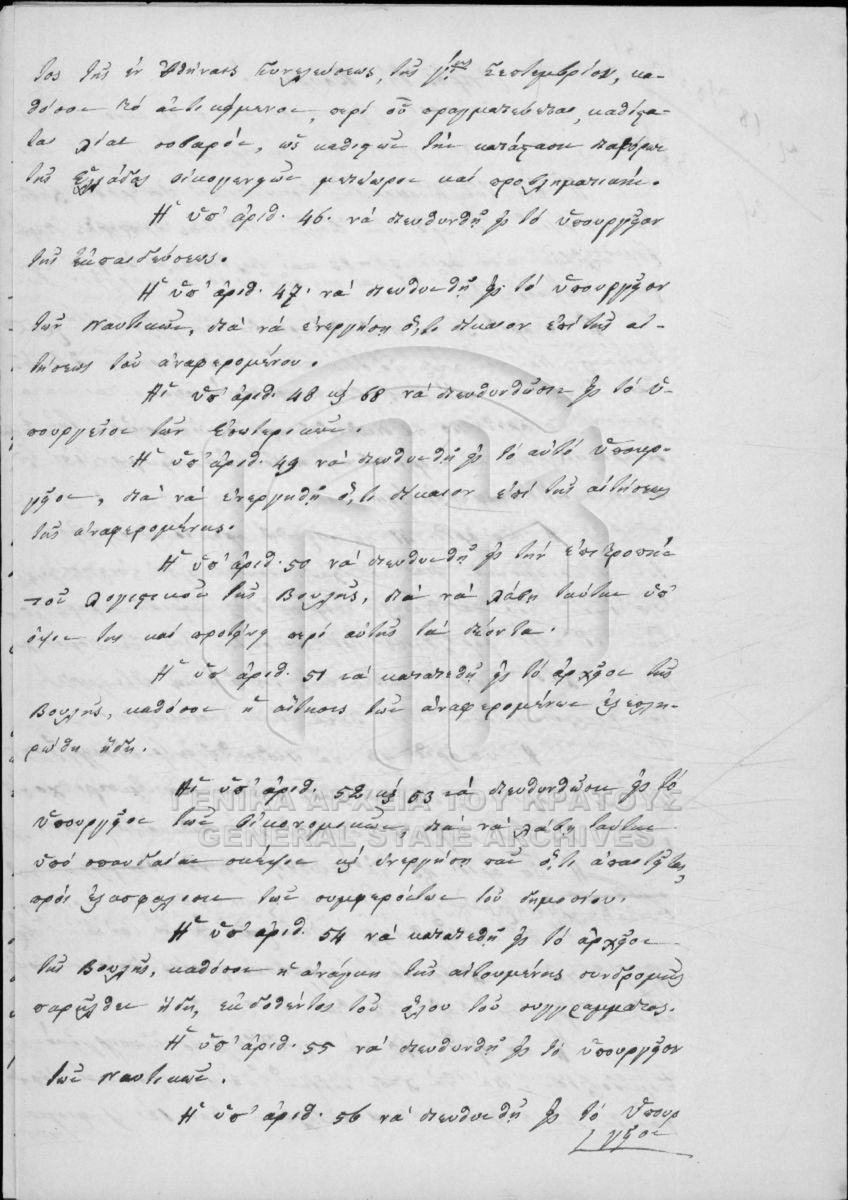 τος τῆς ἐν Ἀθήναις Συνελεύσεως, τῆς Σεπτεμβρίου, κα-
θόσον τὸ ἀντικείμενον, περὶ οὗ πραγματεύεται, καθίστα-
ται λίαν σοβαρόν, ὡς καθιστῶν τὴν κατάστασιν
τῆς Ἑλλάδος μετέωρον καὶ προβληματικήν.
Ἡ ὑπ' ἀριθ. 46. νὰ διευθυνθῇ εἰς τὸ Ὑπουργεῖον
τῆς ἐκπαιδεύσεως.
Ἡ ὑπ' ἀριθ. 47. νὰ διευθυνθῇ εἰς τὸ Ὑπουργεῖον
τῶν Ναυτικῶν, διὰ νὰ ἐνεργήσῃ ὅ,τι δίκαιον ἐπὶ τῆς αἰ-
τήσεως τοῦ ἀναφερομένου.
Αἱ ὑπ' ἀριθ. 48 καὶ 68 νὰ διευθυνθῶσιν εἰς τὸ Ὑ-
πουργεῖον τῶν Ἐσωτερικῶν.
Ἡ ὑπ' ἀριθ. 49 νὰ διευθυνθῇ εἰς τὸ αὐτὸ Ὑπουρ-
γεῖον, διὰ νὰ ἐνεργηθῇ ὅ,τι δίκαιον ἐπὶ τῆς αἰτήσεως
τῆς ἀναφερομένης.
Ἡ ὑπ' ἀριθ. 50 νὰ διευθυνθῇ εἰς τὴν ἐπιτροπὴν
τοῦ λογιστικοῦ τῆς Βουλῆς, διὰ νὰ λάβῃ ταύτην ὑπ'
ὄψιν της καὶ προτείνῃ περὶ αὐτῆς τὰ δέοντα.
Ἡ ὑπ' ἀριθ. 51 νὰ κατατεθῇ εἰς τὸ ἀρχεῖον τῆς
Βουλῆς, καθόσον ἡ αἴτησις τῶν ἀναφερομένων ἐξεπλη-
ρώθη ἤδη.
Αἱ ὑπ' ἀριθ. 52 καὶ 53 νὰ διευθυνθῶσιν εἰς τὸ
Ὑπουργεῖον τῶν Οἰκονομικῶν, διὰ νὰ λάβῃ ταύτας
ὑπὸ σπουδαίαν σκέψιν καὶ ἐνεργήσῃ πᾶν ὅ,τι ἀπαιτεῖται
πρὸς ἐξασφάλισιν τῶν συμφερόντων τοῦ δημοσίου.
Ἡ ὑπ' ἀριθ. 54 νὰ κατατεθῇ εἰς τὸ ἀρχεῖον
τῆς Βουλῆς, καθόσον ἡ ἀνάγκη τῆς αἰτουμένης συνδρομῆς
παρῆλθεν ἤδη, ἐκδοθέντος τοῦ ὅλου τοῦ συγγράμματος.
Ἡ ὑπ' ἀριθ. 55 νὰ διευθυνθῇ εἰς τὸ Ὑπουργεῖον
τῶν Ναυτικῶν.
Ἡ ὑπ' ἀριθ. 56 νὰ διευθυνθῇ εἰς τὸ Ὑπουρ
γεῖον
ΓΕΝΙΚΑ ΑΡΧΕΙΑ ΤΟΥ ΚΡΑΤΟΥΣ
GENERAL STATE ARCHIVES